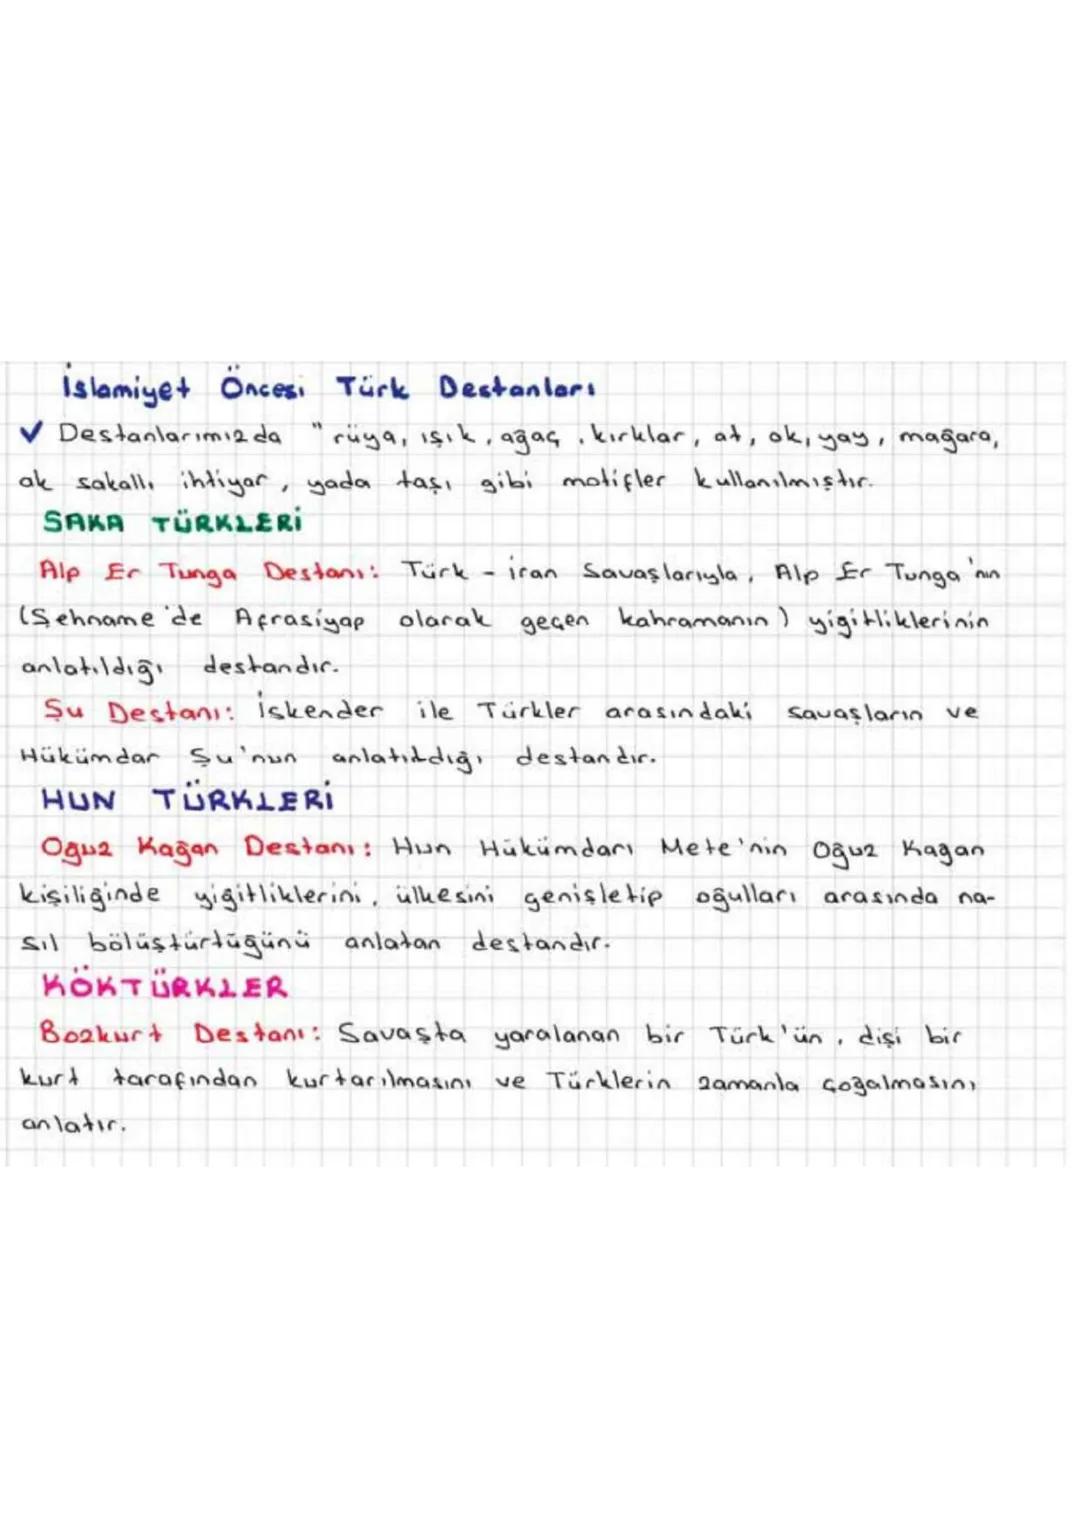 İslamiyet Öncesi Türk Destanları
✓ Destanlarımızda "rüya, ışık, ağaç, kırklar, at, ok, yay, mağara,
ak sakallı ihtiyar, yada taşı gibi motifler kullanılmıştır.
SAKA TÜRKLERİ
Alp Er Tunga Destanı: Türk - İran Savaşlarıyla, Alp Er Tunga'nın
(Şehname'de Afrasiyap olarak geçen kahramanın) yiğitliklerinin
anlatıldığı destandır.
Şu Destanı: İskender ile Türkler arasındaki savaşların ve
Hükümdar Şu'nun anlatıldığı destandır.
HUN TÜRKLERİ
Oğuz Kağan Destanı: Hun Hükümdarı Mete'nin Oğuz Kağan
kişiliğinde yiğitliklerini, ülkesini genişletip oğulları arasında na-
sıl bölüştürtüğünü anlatan destandır.
KÖKTÜRKLER
Bozkurt Destanı: Savaşta yaralanan bir Türk'ün, dişi bir
kurt tarafından kurtarılmasını ve Türklerin zamanla çoğalmasını
anlatır.